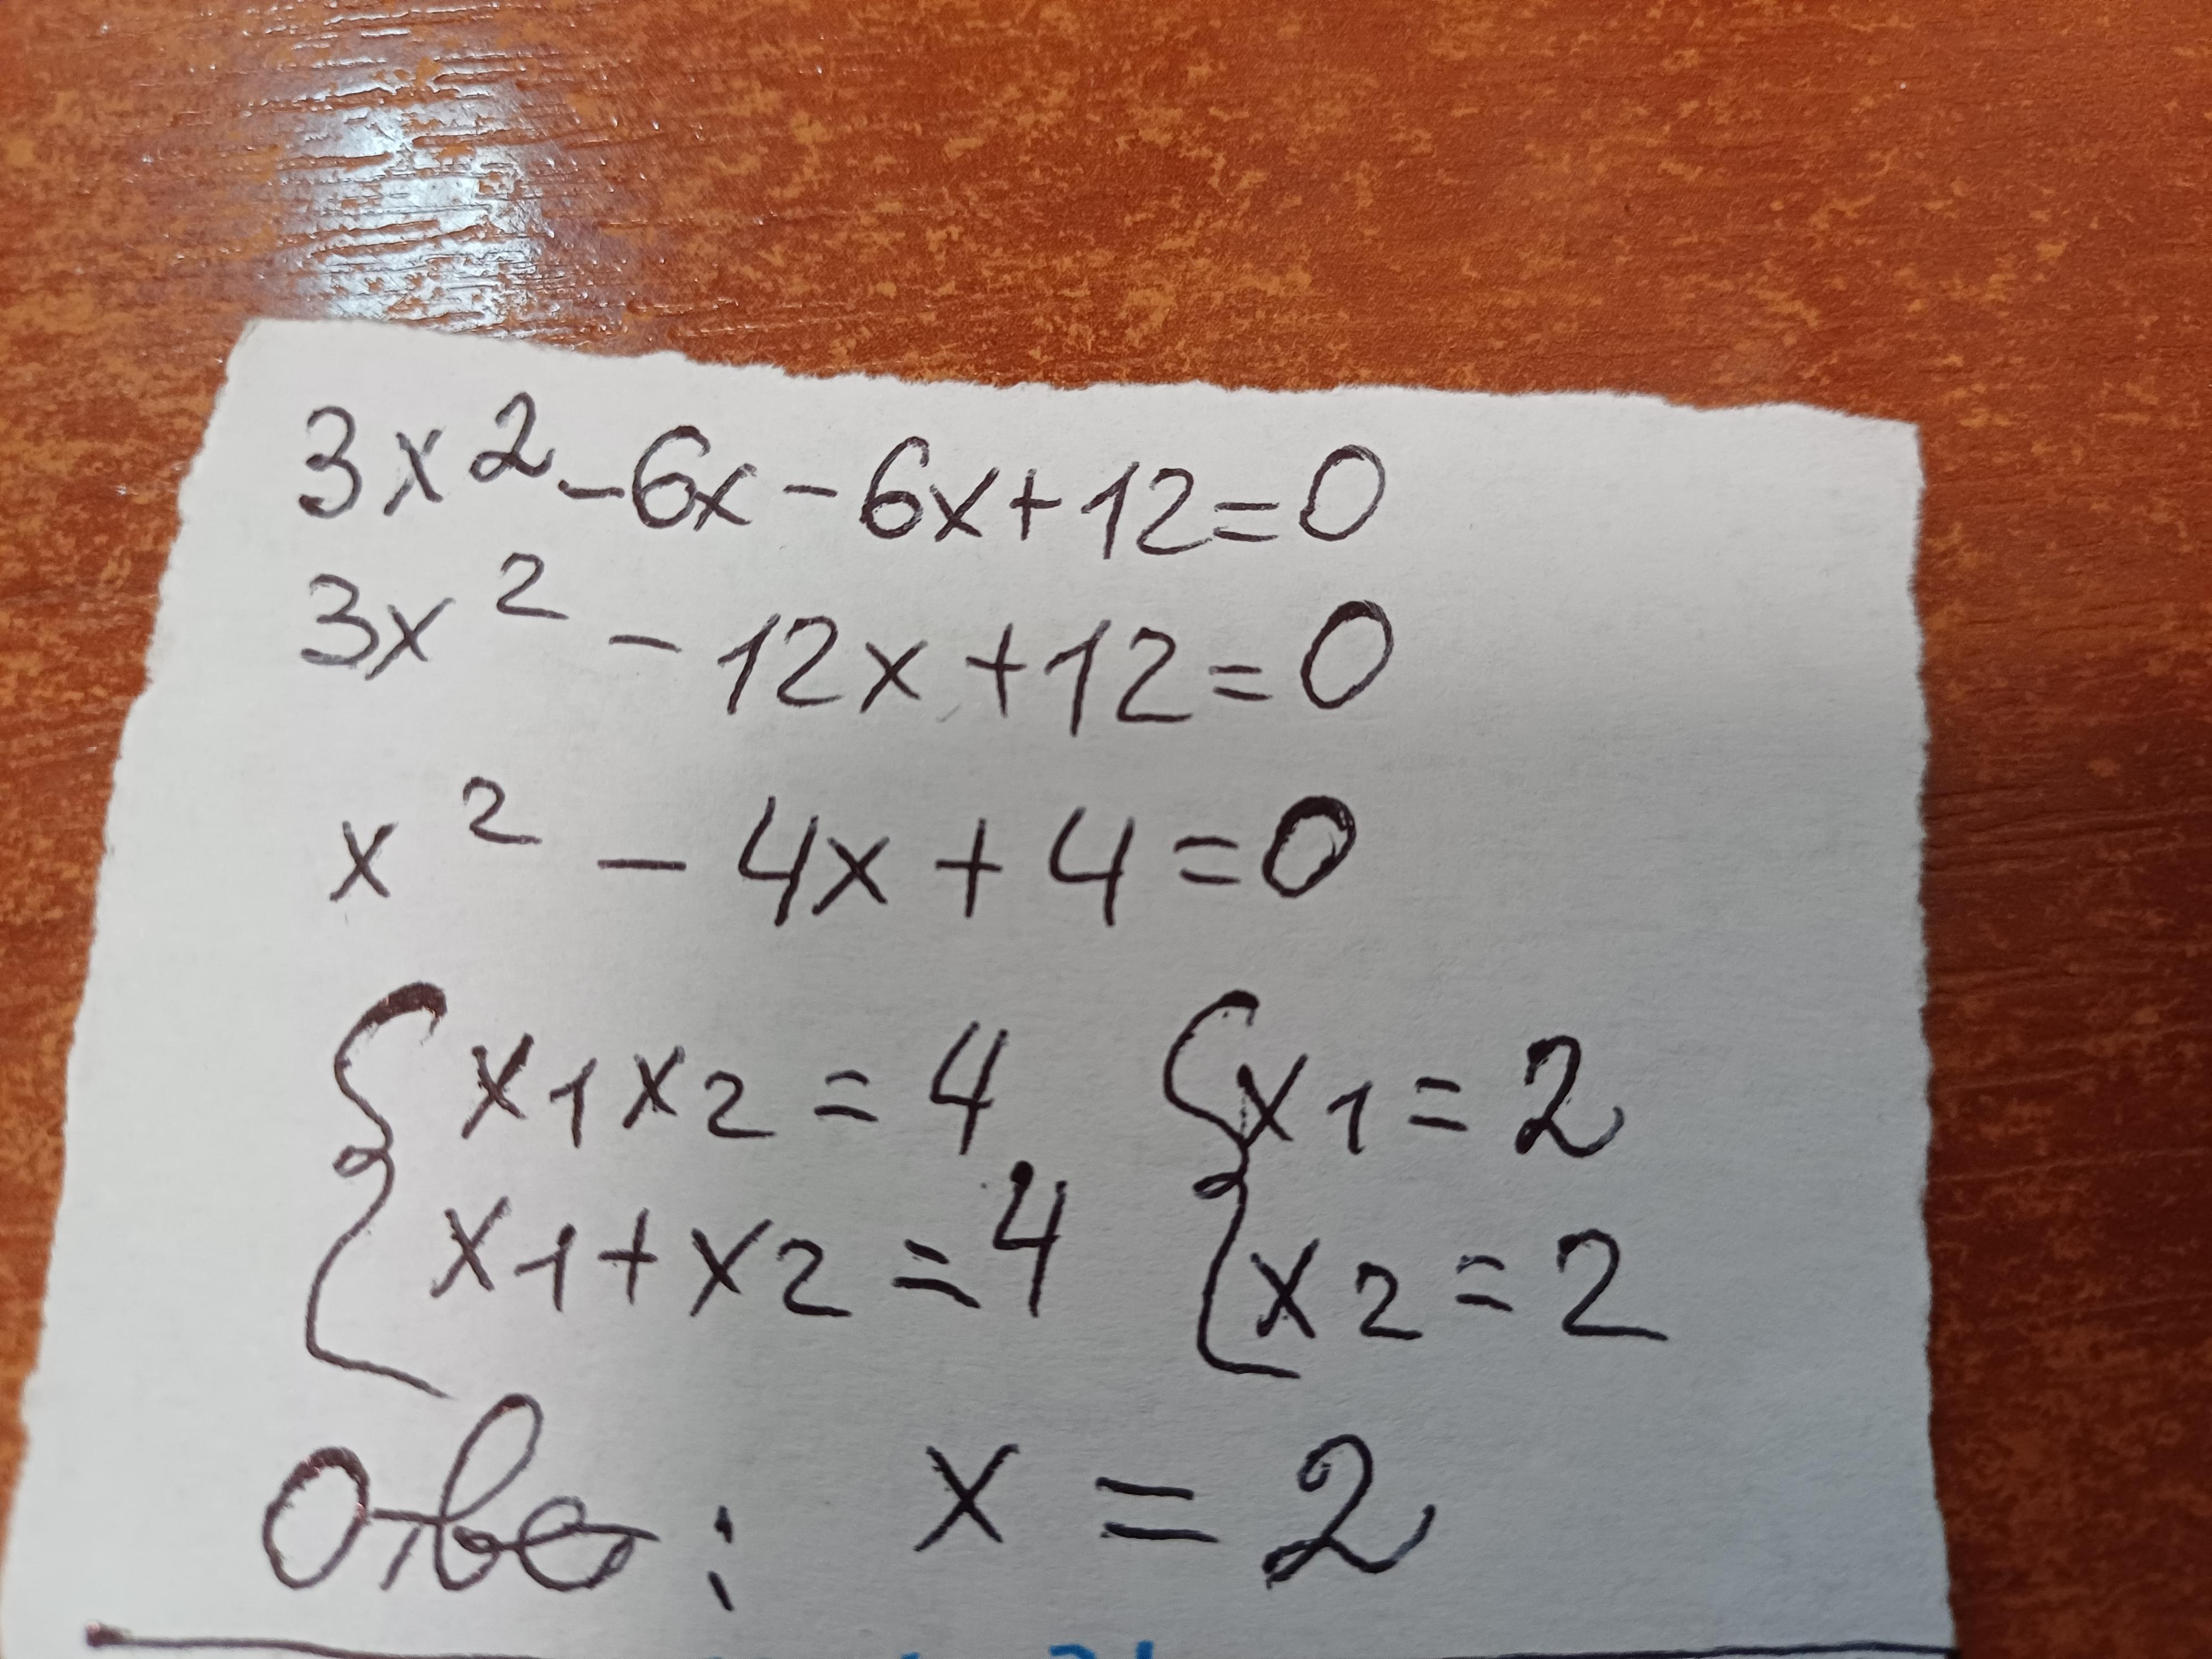 3x² - 6x - 6x + 12 = 0
3x² - 12x + 12 = 0
x² - 4x + 4 = 0
{ x1x2 = 4 { x1 = 2
{ x1 + x2 = 4 { x2 = 2
Ответ: x = 2